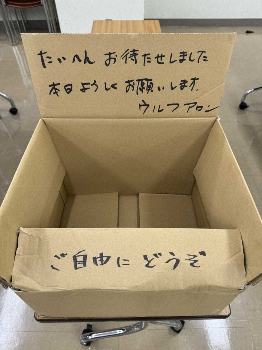 たいへん お待たせしました
本日よろしくお願いします。
ウルフアロン
ご自由に どうぞ